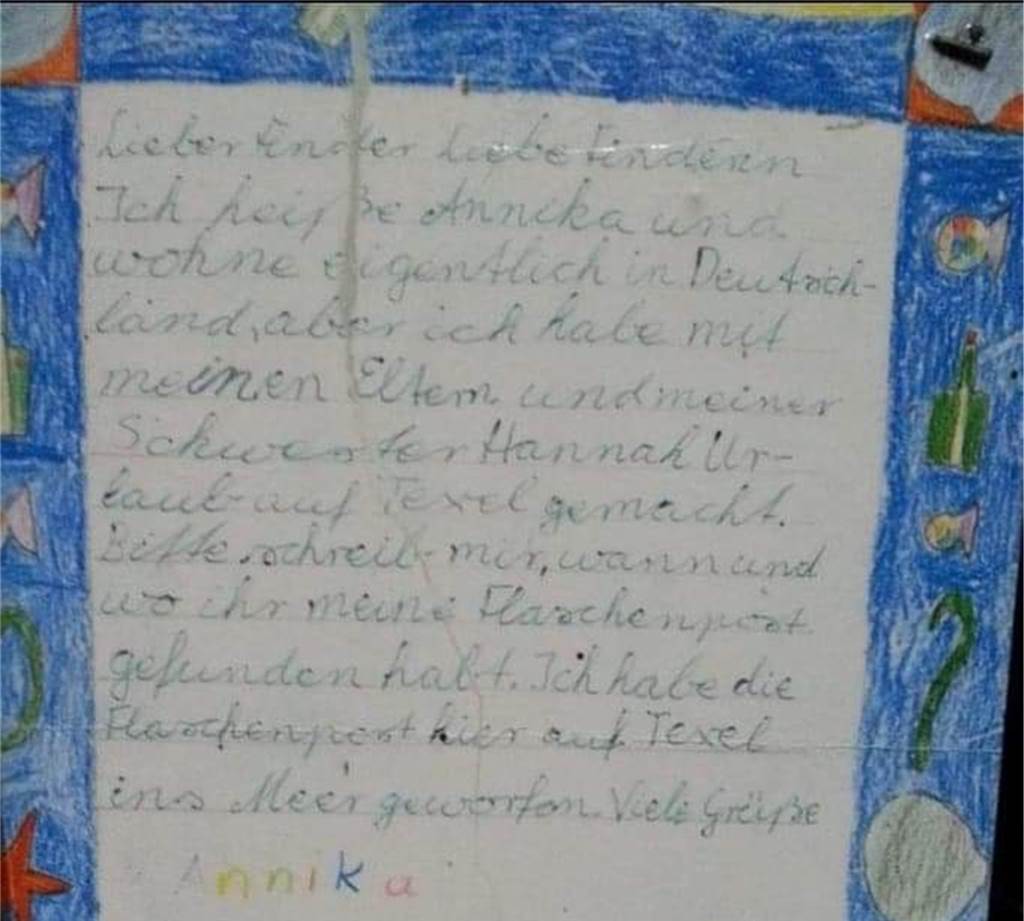 Lieber Finder liebe Finderin
Ich heiße Annika und
wohne eigentlich in Deutsch-
land, aber ich habe mit
meinen Eltern und meiner
Schwester Hannah Ur-
laub auf Texel gemacht.
Bitte schreib mir, wann und
wo ihr meine Flaschenpost
gefunden habt. Ich habe die
Flaschenpost hier auf Texel
ins Meer geworfen. Viele Grüße
Annika